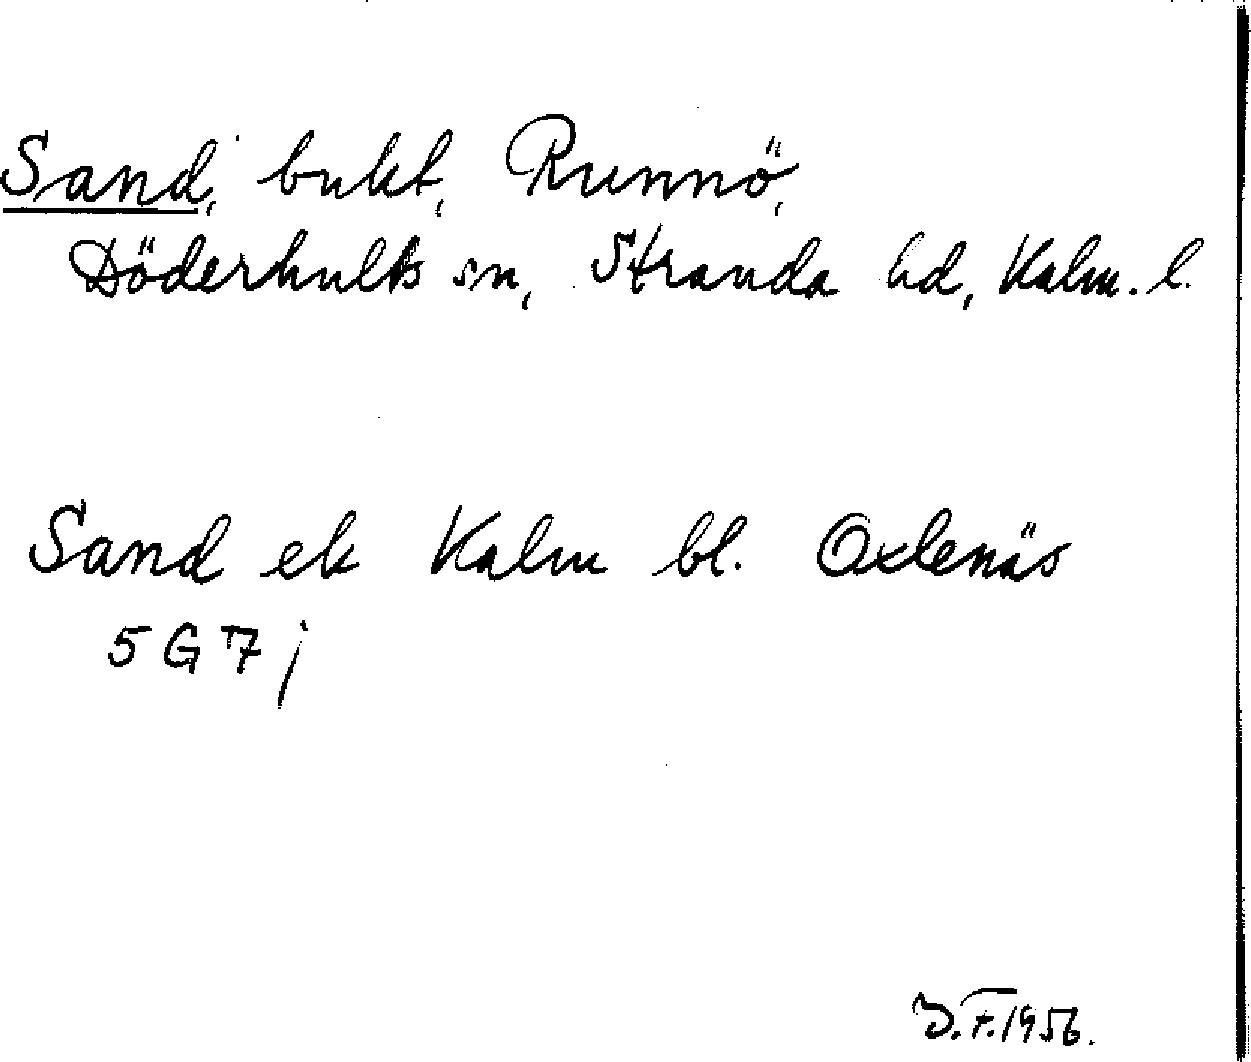 Sand, bukt, Runnö,
Döderhults sn, Stranda hd, Kalm. l.
Sand ek Kalm bl. Oxlenäs
5 G 7 j
D.F. 1956.